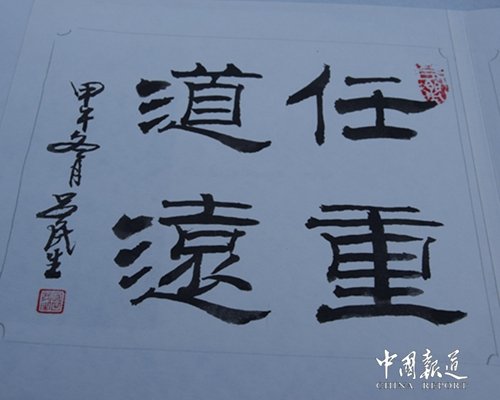 任重
道遠
甲午冬月 吕民生
中國報道
CHINA REPORT